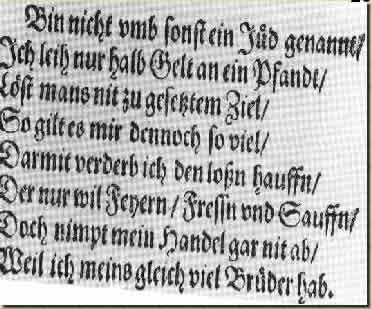 Bin nicht vmb sonst ein Jůd genannt/
Ich leih nur halb Gelt an ein Pfandt/
Löst mans nit zu gesetztem Ziel/
So gilt es mir dennoch so viel/
Darmit verderb ich den loßn hauffn/
Der nur wil Feyern/ Fressin vnd Sauffn/
Doch nimpt mein Handel gar nit ab/
Weil ich meins gleich viel Brůder hab.